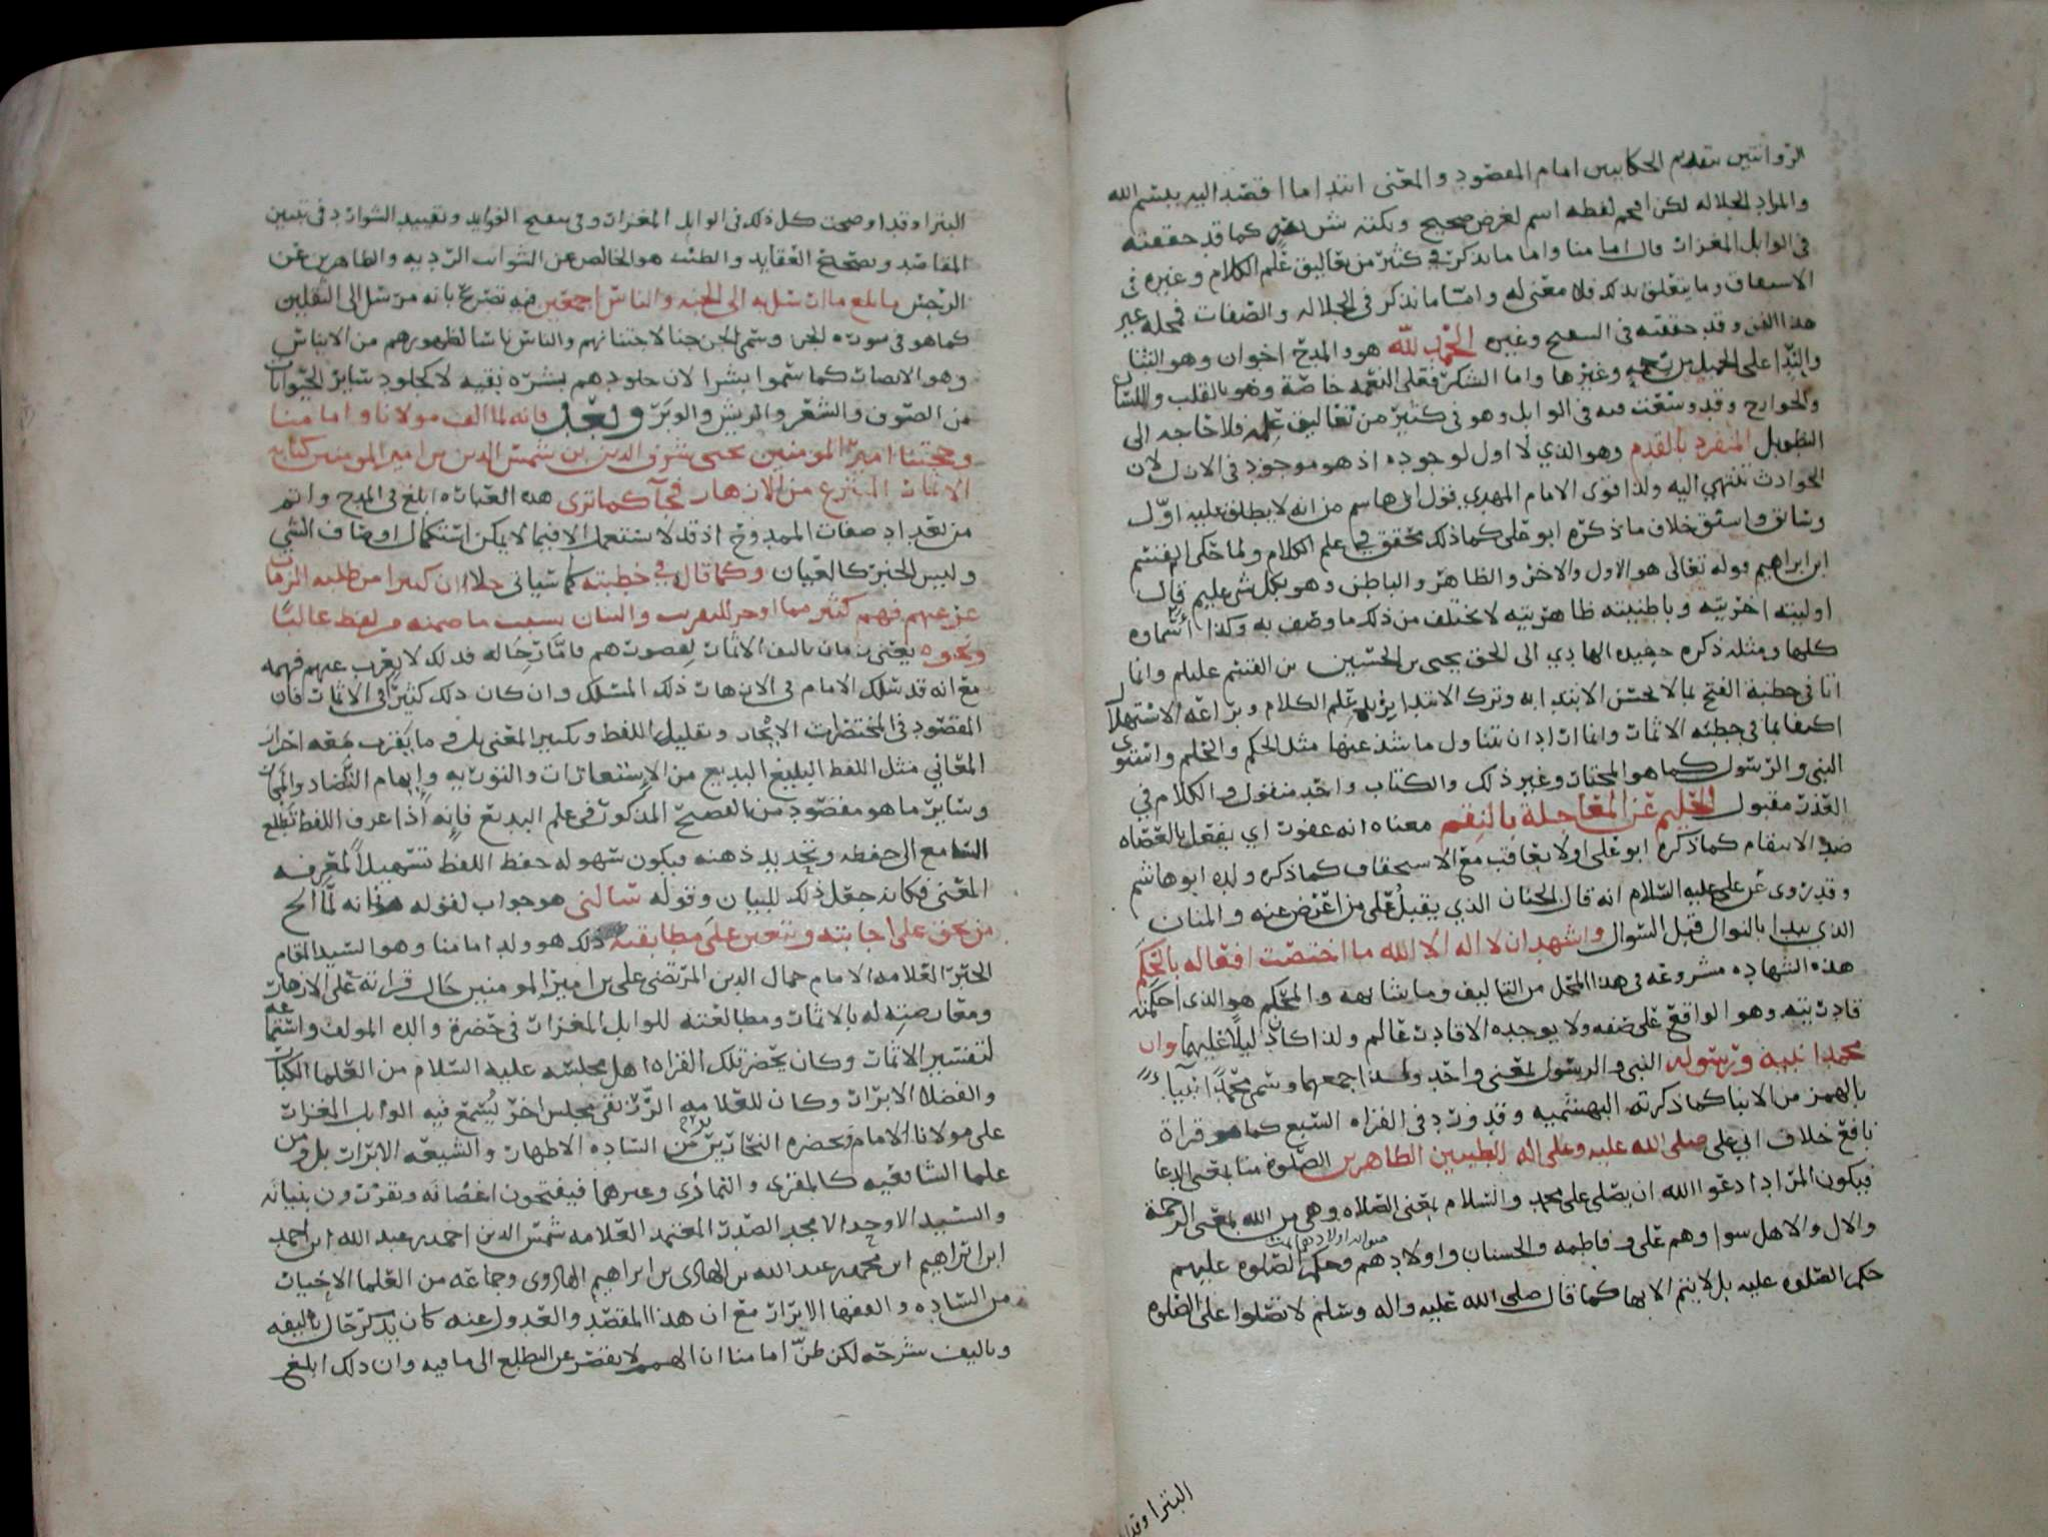 الروايتين بتقديم الحكايتين امام المقصود والمعنى ابتدا ما اقصد اليه ببسم الله
والمراد الجلاله لكن اقحم لفظه اسم لغرض صحيح ونكته كما قد حققته
في الوابل المغزار قال امامنا واما ما يذكر في كثير من تعاليق علم الكلام وغيره في
الاشتقاق وما يتعلق بذلك فلا معنى له وامّا ما يذكر في الجلاله والصفات فمحله غير
هذا الفن وقد حققته في وغيره الحمد لله هو والمدح اخوان وهو الثنا
على الجميل من نعمه وغيرها واما الشكر فعلى النعمه خاصّة وهو بالقلب واللسان
والجوارح وقد وسّعت فيه في الوابل وهو في كثير من تعاليق علمه فلا حاجه الى
التطويل المنفرد بالقدم وهو الذي لا اول لوجوده اذ هو موجود في الازل لان
الحوادث تنتهي اليه ولذا قوى الامام المهدي قول ابي هاسم من انه لا يطلق عليه اوّل
وسابق واسبق خلاف ما ذكره ابو علي كما ذلك محقق في علم الكلام ولما حكى القسم
ابن ابراهيم قوله تعالى هو الاول والاخر والظاهر والباطن وهو بكل شي عليم قال
اوليته اخريته وباطنيته ظاهريته لا يختلف من ذلك ما وصف به وكذا اسماوه
كلها ومثله ذكره حفيده الهادي الى الحق يحيى بن الحسين بن القسم عليلم وانما
انا في خطبة الفتح بما لا يحسن الابتدا به وترك الابتدا علم الكلام وبراعه الاستهلال
اكتفا بما في خطبه الاثمار وانما اراد ان يتناول ما شذ عنها مثل الحكم والحلم واستوى
النبي والرسول كما هو المختار وغير ذلك والكتاب واحد منقول والكلام في
العذر مقبول الحليم عن المعاجله بالنقم معناه انه عفو اي يفعل بالعصاه
ضد الانتقام كما ذكره ابو علي او لا يعاقب مع الاستحقاق كما ذكره ولده ابو هاشم
وقد روى عن علي عليه السلام انه قال الحنان الذي يقبل على من اعرض عنه والمنان
الذي يبدا بالنوال قبل السوال واشهد ان لا اله الا الله ما اختصّت افعاله بالحكم
هذه الشهاده مشروعه في هذا المحل من التاليف وما شابهه والمحكم هو الذي احكمته
قادريته وهو الواقع على ولا يوجده الا قادر عالم ولذا كان دليلا عليهما وان
محمدا نبيه ورسوله النبي والرسول بمعنى واحد ولهذا جمعهما وسمى محمّدًا نبيا
بالهمز من الانبا كما ذكرته البهشميه وقد ورد في القراه السبع كما هو قراة
نافع خلاف ابي علي صلى الله عليه وعلى اله الطيبين الطاهرين الصّلوة منا بمعنى الدعا
فيكون المراد ادعوا الله ان يصلى على محمد والسلام بمعنى الصلاه وهي من الله بمعنى الرحمة
والال والاهل سوا وهم علي وفاطمه والحسنان واولادهم وحكم الصلوه عليهم
حكم الصلوه عليه بل لا يتم الا بها كما قال صلى الله عليه واله وسلم لا تصّلوا على الصلوه
البترا وقد
البترا وقد اوضحت كل ذلك في الوابل المغزار وفي الفوايد وتقييد الشوارد في تبيين
المقاصد وتصحيح العقايد والطيب هو الخالص من الشوايب الرديه والطاهرين عن
الرجس ما بلغ ما ارسل به الى الجنه والناس اجمعين فيه تصريح بانه مرسل الى الثقلين
كما هو في سوره الجن وسمي الجن جنا لاجتنانهم والناس ناسا لظهورهم من الايناس
وهو الابصار كما سمّوا بشرا لان جلودهم بشره نقيه لا كجلود سائر الحيوانات
من الصّوف والشعر والريش والوبر وبعد فانه لما الف مولانا وامامنا
وحجتنا امير المومنين يحيى شرف الدين بن شمس الدين بن امير المومنين كتابه
الاثمار المنتزع من الازهار فجآ كما ترى هذه العباره ابلغ في المدح واتم
من تعديد صفات الممدوح اذ قد لا تستعمل الا فيما لا يمكن استكمال اوصاف الشي
وليس الخبر كالعيان وكما قال في خطبته كما سياتي خلا ان كثيرا من طلبه الزمان
عزب عنهم فهم كثير مما اوجز للتقريب والبيان بسبب ما ضمنه من لفظ غالبًا
ونحوه يعني زمان تاليف الاثمار لقصورهم فامّا رجاله فذلك لا يعزب عنهم فهمه
مع انه قد سلك الامام في الازهار ذلك المسلك وان كان ذلك كثيرًا في الاثمار فان
المقصود في المختصرات الايجاز وتقليل اللفظ وتكثير المعنى بل وما يقرب معه احراز
المعاني مثل اللفظ البليغ البديع من الاستعارات والتوريه وايهام التضاد والمجاز
وساير ما هو مقصود من الفصيح المذكور في علم البديع فانه اذا عرف اللفظ تطلع
السامع الى حفظه وتجديد ذهنه فيكون سهوله حفظ اللفظ تسهيلاً لمعرفه
المعنى فكان جعل ذلك للبيان وقوله سالني هو جواب لقوله فانه لمّا الح
من يحق على اجابته وتتعين علي مطابقته ذلك هو ولد امامنا وهو السيد المقام
الحبر العلامه الامام جمال الدين المرتضى علي بن امير المومنين حال قراءته على الازهار
ومعارضته له بالاثمار ومطالعته للوابل المغزار في حضرة والده المولف واستماعه
لتفسير الاثمار وكان يحضر تلك القراه اهل مجلسه عليه السلام من العلما الكبار
والفضلا الابرار وكان للعلامه مجلس اخر يسمع فيه الوابل المغزار
على مولانا الامام ويحضره النحارير من الساده الاطهار والشيعه الابرار بل ومن
علما الشافعيه كالمقرى والذماري وغيرهما فيفتحون اغصانه ويقررون بنيانه
والسيد الاوحد الامجد الصدر المعتمد العلامه شمس الدين احمد بن عبد الله ابن احمد
ابن ابراهيم ابن محمد بن عبد الله بن الهادي بن ابراهيم الهادوي وجماعه من العلما الاخيار
من السّاده والفقها الابرار مع ان هذا المقصد والعدول عنه كان يذكر حال تاليفه
وتاليف شرحه لكن ظنّ امامنا ان الهمم لا تقصر عن التطلع الى ما فيه وان ذلك ابلغ